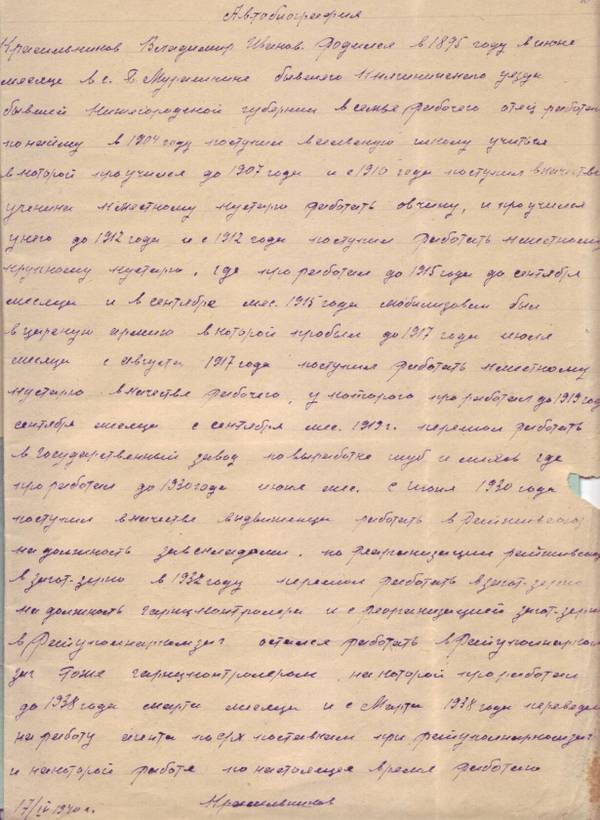 Автобиография
Красильников Владимир Иванов. Родился в 1895 году в июне
месяце в с. Б. Мурашкине бывшего Княгининского уезда
бывшей Нижегородской губернии в семье рабочего отец работал
по найму в 1904 году поступил в сельскую школу учиться
в которой проучился до 1907 года и с 1910 года поступил в качестве
ученика к местному кустарю работать овчину, и проучился
у него до 1912 года и с 1912 года поступил работать к местному
крупному кустарю, где проработал до 1915 года до сентября
месяца и в сентябре мес. 1915 года мобилизован был
в царскую армию в которой пробыл до 1917 года июля
месяца с августа 1917 года поступил работать к местному
кустарю в качестве рабочего, у которого проработал до 1919 год
сентября месяца с сентября мес. 1919 г. перешол работать
в государственный завод по выработке шуб и мехов где
проработал до 1930 года июня мес. с июня 1930 года
поступил в качестве выдвиженца работать в
на должность зав складами. по реорганизации
в загот-зерно в 1932 году перешол работать в загот-зерно
на должность гарнцконтролера и с реорганизацией загот-зерно
в Райуполнаркомзаг остался работать в Райуполнарком
заг тоже гарнцконтролером, на которой проработал
до 1938 года марта месяца и с Марта 1938 года переведен
на работу агента по с/х поставкам при райуполнаркомзаг
и на которой работе по настоящее время работаю
17/IV 1940 г. Красильников